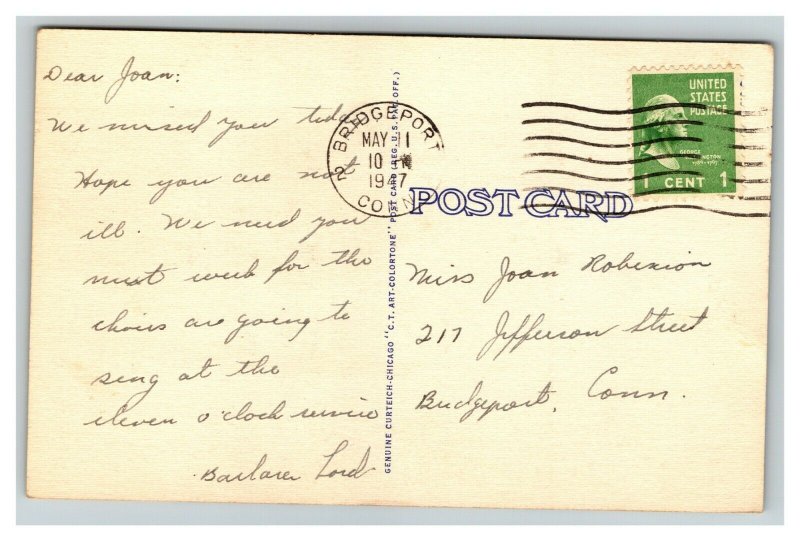 Dear Joan:
We missed you today
Hope you are not
ill. We need you
next week for the
choirs are going to
sing at the
eleven o'clock service
Barbara Lord
GENUINE CURTEICH-CHICAGO "C.T. ART-COLORTONE" POST CARD (REG. U.S. PAT. OFF.)
BRIDGEPORT 2
MAY 11
10
1947
CONN
UNITED
STATES
POSTAGE
GEORGE
WASHINGTON
1789-1797
1 CENT 1
POST CARD
Miss Joan Robinson
217 Jefferson Street
Bridgeport, Conn.